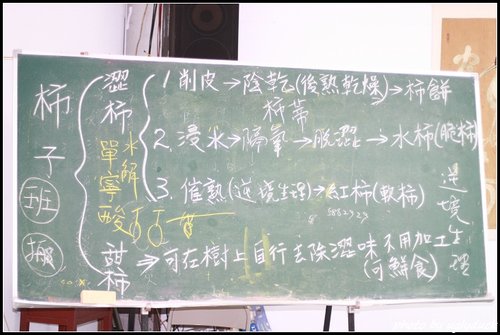 柿子
班
搬
澀柿
水解
單寧酸
1. 削皮→陰乾(後熟乾燥)→柿餅
柿蒂
2. 浸水→隔氧→脫澀→水柿(脆柿)
3. 催熟(逆境生理)→紅柿(軟柿)
甜柿⇒可在樹上自行去除澀味 不用加工
(可鮮食)
逆境生理